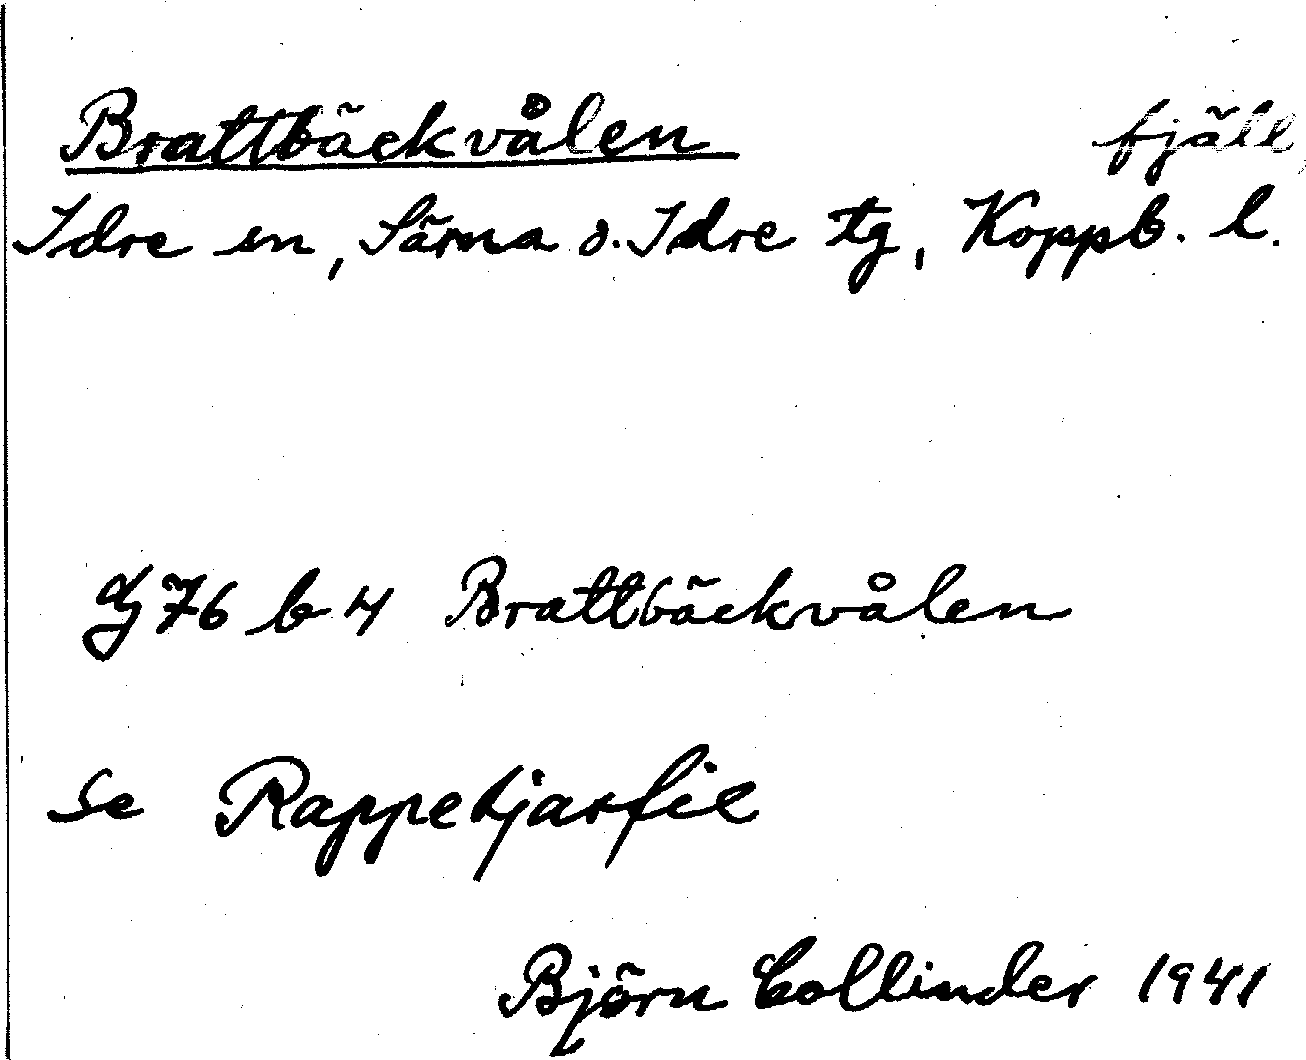 Brattbäckvålen fjäll
Idre sn, Särna o. Idre tg, Koppb. l.
G 76 b 4 Brattbäckvålen
Se
Björn Collinder 1941